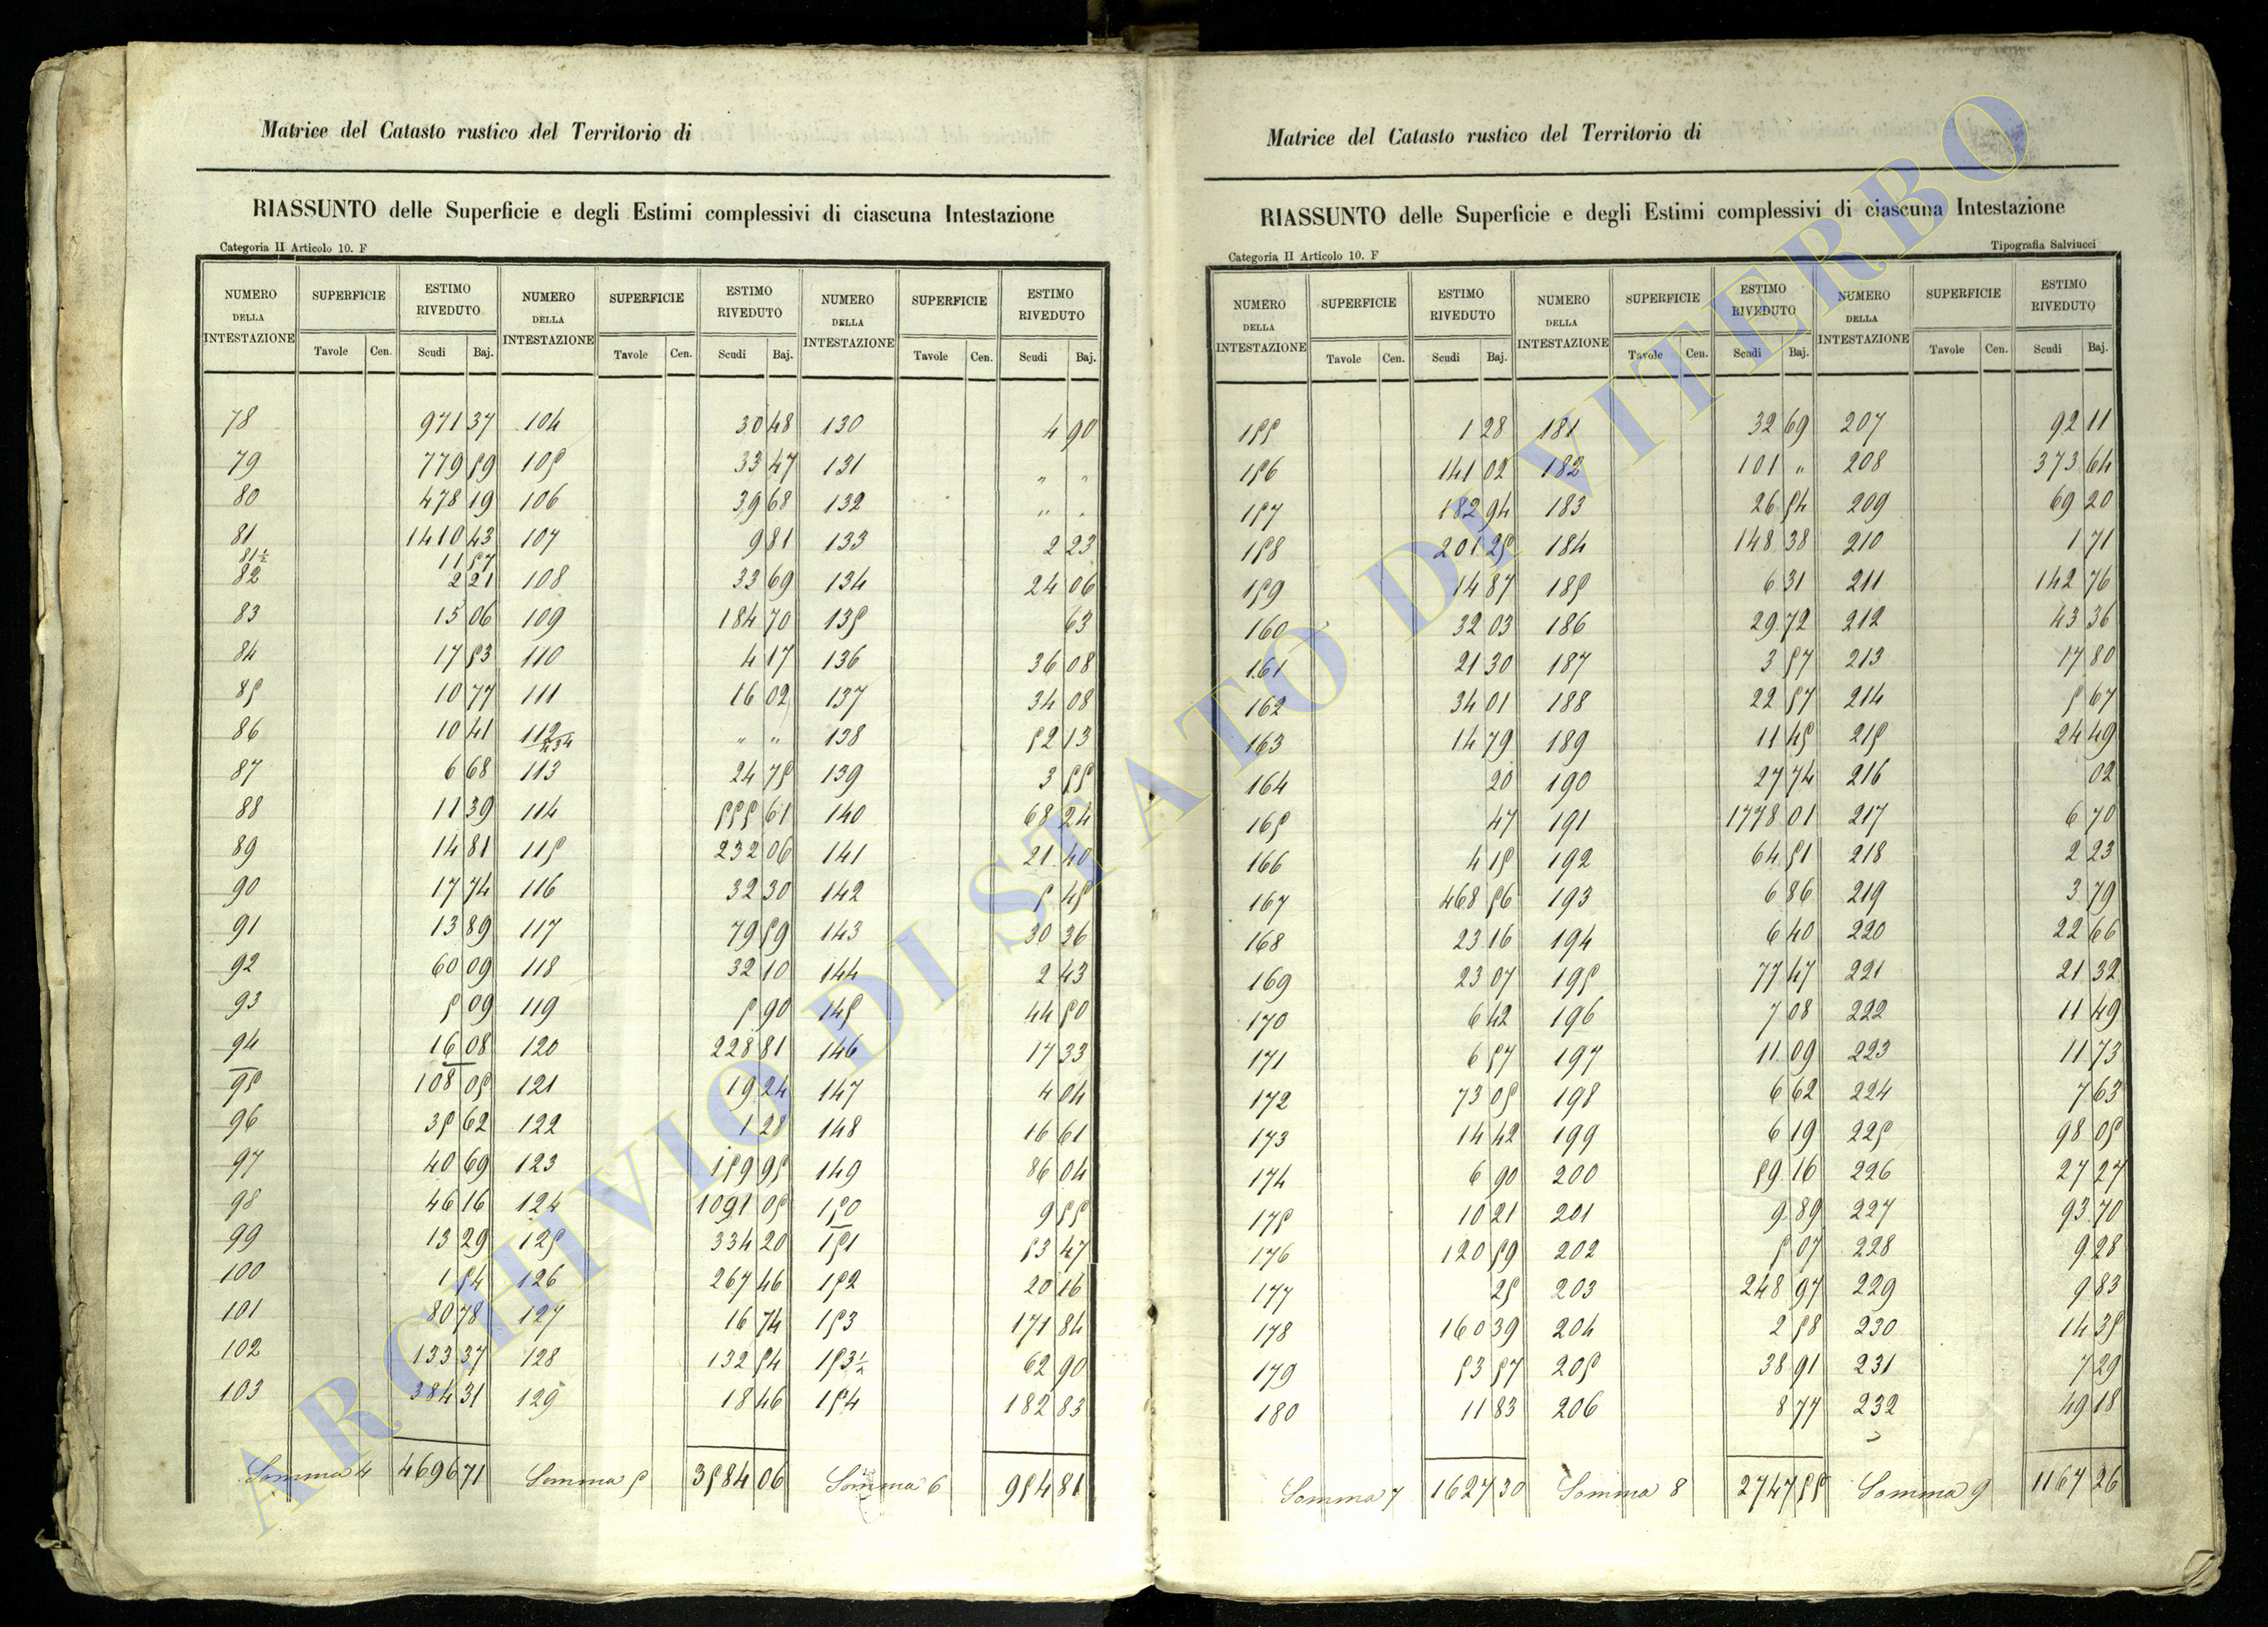 Matrice del Catasto rustico del Territorio di
RIASSUNTO delle Superficie e degli Estimi complessivi di ciascuna Intestazione
Categoria II Articolo 10. F
NUMERO DELLA INTESTAZIONE SUPERFICIE ESTIMO RIVEDUTO NUMERO DELLA INTESTAZIONE SUPERFICIE ESTIMO RIVEDUTO NUMERO DELLA INTESTAZIONE SUPERFICIE ESTIMO RIVEDUTO
Tavole Cen. Scudi Baj. Tavole Cen. Scudi Baj. Tavole Cen. Scudi Baj.
78 971 37 104 30 48 130 4 90
79 779 59 105 33 47 131 " "
80 478 19 106 39 68 132 " "
81 1410 43 107 9 81 133 2 23
81½ 11 57
82 2 21 108 33 69 134 24 06
83 15 06 109 184 70 135 63
84 17 53 110 4 17 136 36 08
85 10 77 111 16 02 137 34 08
86 10 41 112 " " 138 52 13
87 6 68 113 24 75 139 3 55
88 11 39 114 555 61 140 68 24
89 14 81 115 232 06 141 21 40
90 17 74 116 32 30 142 5 45
91 13 89 117 79 59 143 30 36
92 60 09 118 32 10 144 2 43
93 5 09 119 5 90 145 44 50
94 16 08 120 228 81 146 17 33
95 108 05 121 19 24 147 4 04
96 35 62 122 1 28 148 16 61
97 40 69 123 159 95 149 86 04
98 46 16 124 1091 05 150 9 55
99 13 29 125 334 20 151 53 47
100 1 54 126 267 46 152 20 16
101 80 78 127 16 74 153 171 84
102 133 37 128 132 54 153½ 62 90
103 384 31 129 18 46 154 182 83
Somma 4 4696 71 Somma 5 3584 06 Somma 6 954 81
Matrice del Catasto rustico del Territorio di
RIASSUNTO delle Superficie e degli Estimi complessivi di ciascuna Intestazione
Categoria II Articolo 10. F Tipografia Salviucci
NUMERO DELLA INTESTAZIONE SUPERFICIE ESTIMO RIVEDUTO NUMERO DELLA INTESTAZIONE SUPERFICIE ESTIMO RIVEDUTO NUMERO DELLA INTESTAZIONE SUPERFICIE ESTIMO RIVEDUTO
Tavole Cen. Scudi Baj. Tavole Cen. Scudi Baj. Tavole Cen. Scudi Baj.
155 1 28 181 32 69 207 92 11
156 141 02 182 101 " 208 373 64
157 182 94 183 26 54 209 69 20
158 201 25 184 148 38 210 1 71
159 14 87 185 6 31 211 142 76
160 32 03 186 29 72 212 43 36
161 21 30 187 3 57 213 17 80
162 34 01 188 22 57 214 5 67
163 14 79 189 11 45 215 24 49
164 20 190 27 74 216 02
165 47 191 1778 01 217 6 70
166 4 15 192 64 51 218 2 23
167 468 56 193 6 86 219 3 79
168 23 16 194 6 40 220 22 66
169 23 07 195 77 47 221 21 32
170 6 42 196 7 08 222 11 49
171 6 57 197 11 09 223 11 73
172 73 05 198 6 62 224 7 63
173 14 42 199 6 19 225 98 05
174 6 90 200 59 16 226 27 27
175 10 21 201 9 89 227 93 70
176 120 59 202 5 07 228 9 28
177 25 203 248 97 229 9 83
178 160 39 204 2 58 230 14 35
179 53 57 205 38 91 231 7 29
180 11 83 206 8 77 232 49 18
Somma 7 1627 30 Somma 8 2747 55 Somma 9 1167 26
ARCHIVIO DI STATO DI VITERBO